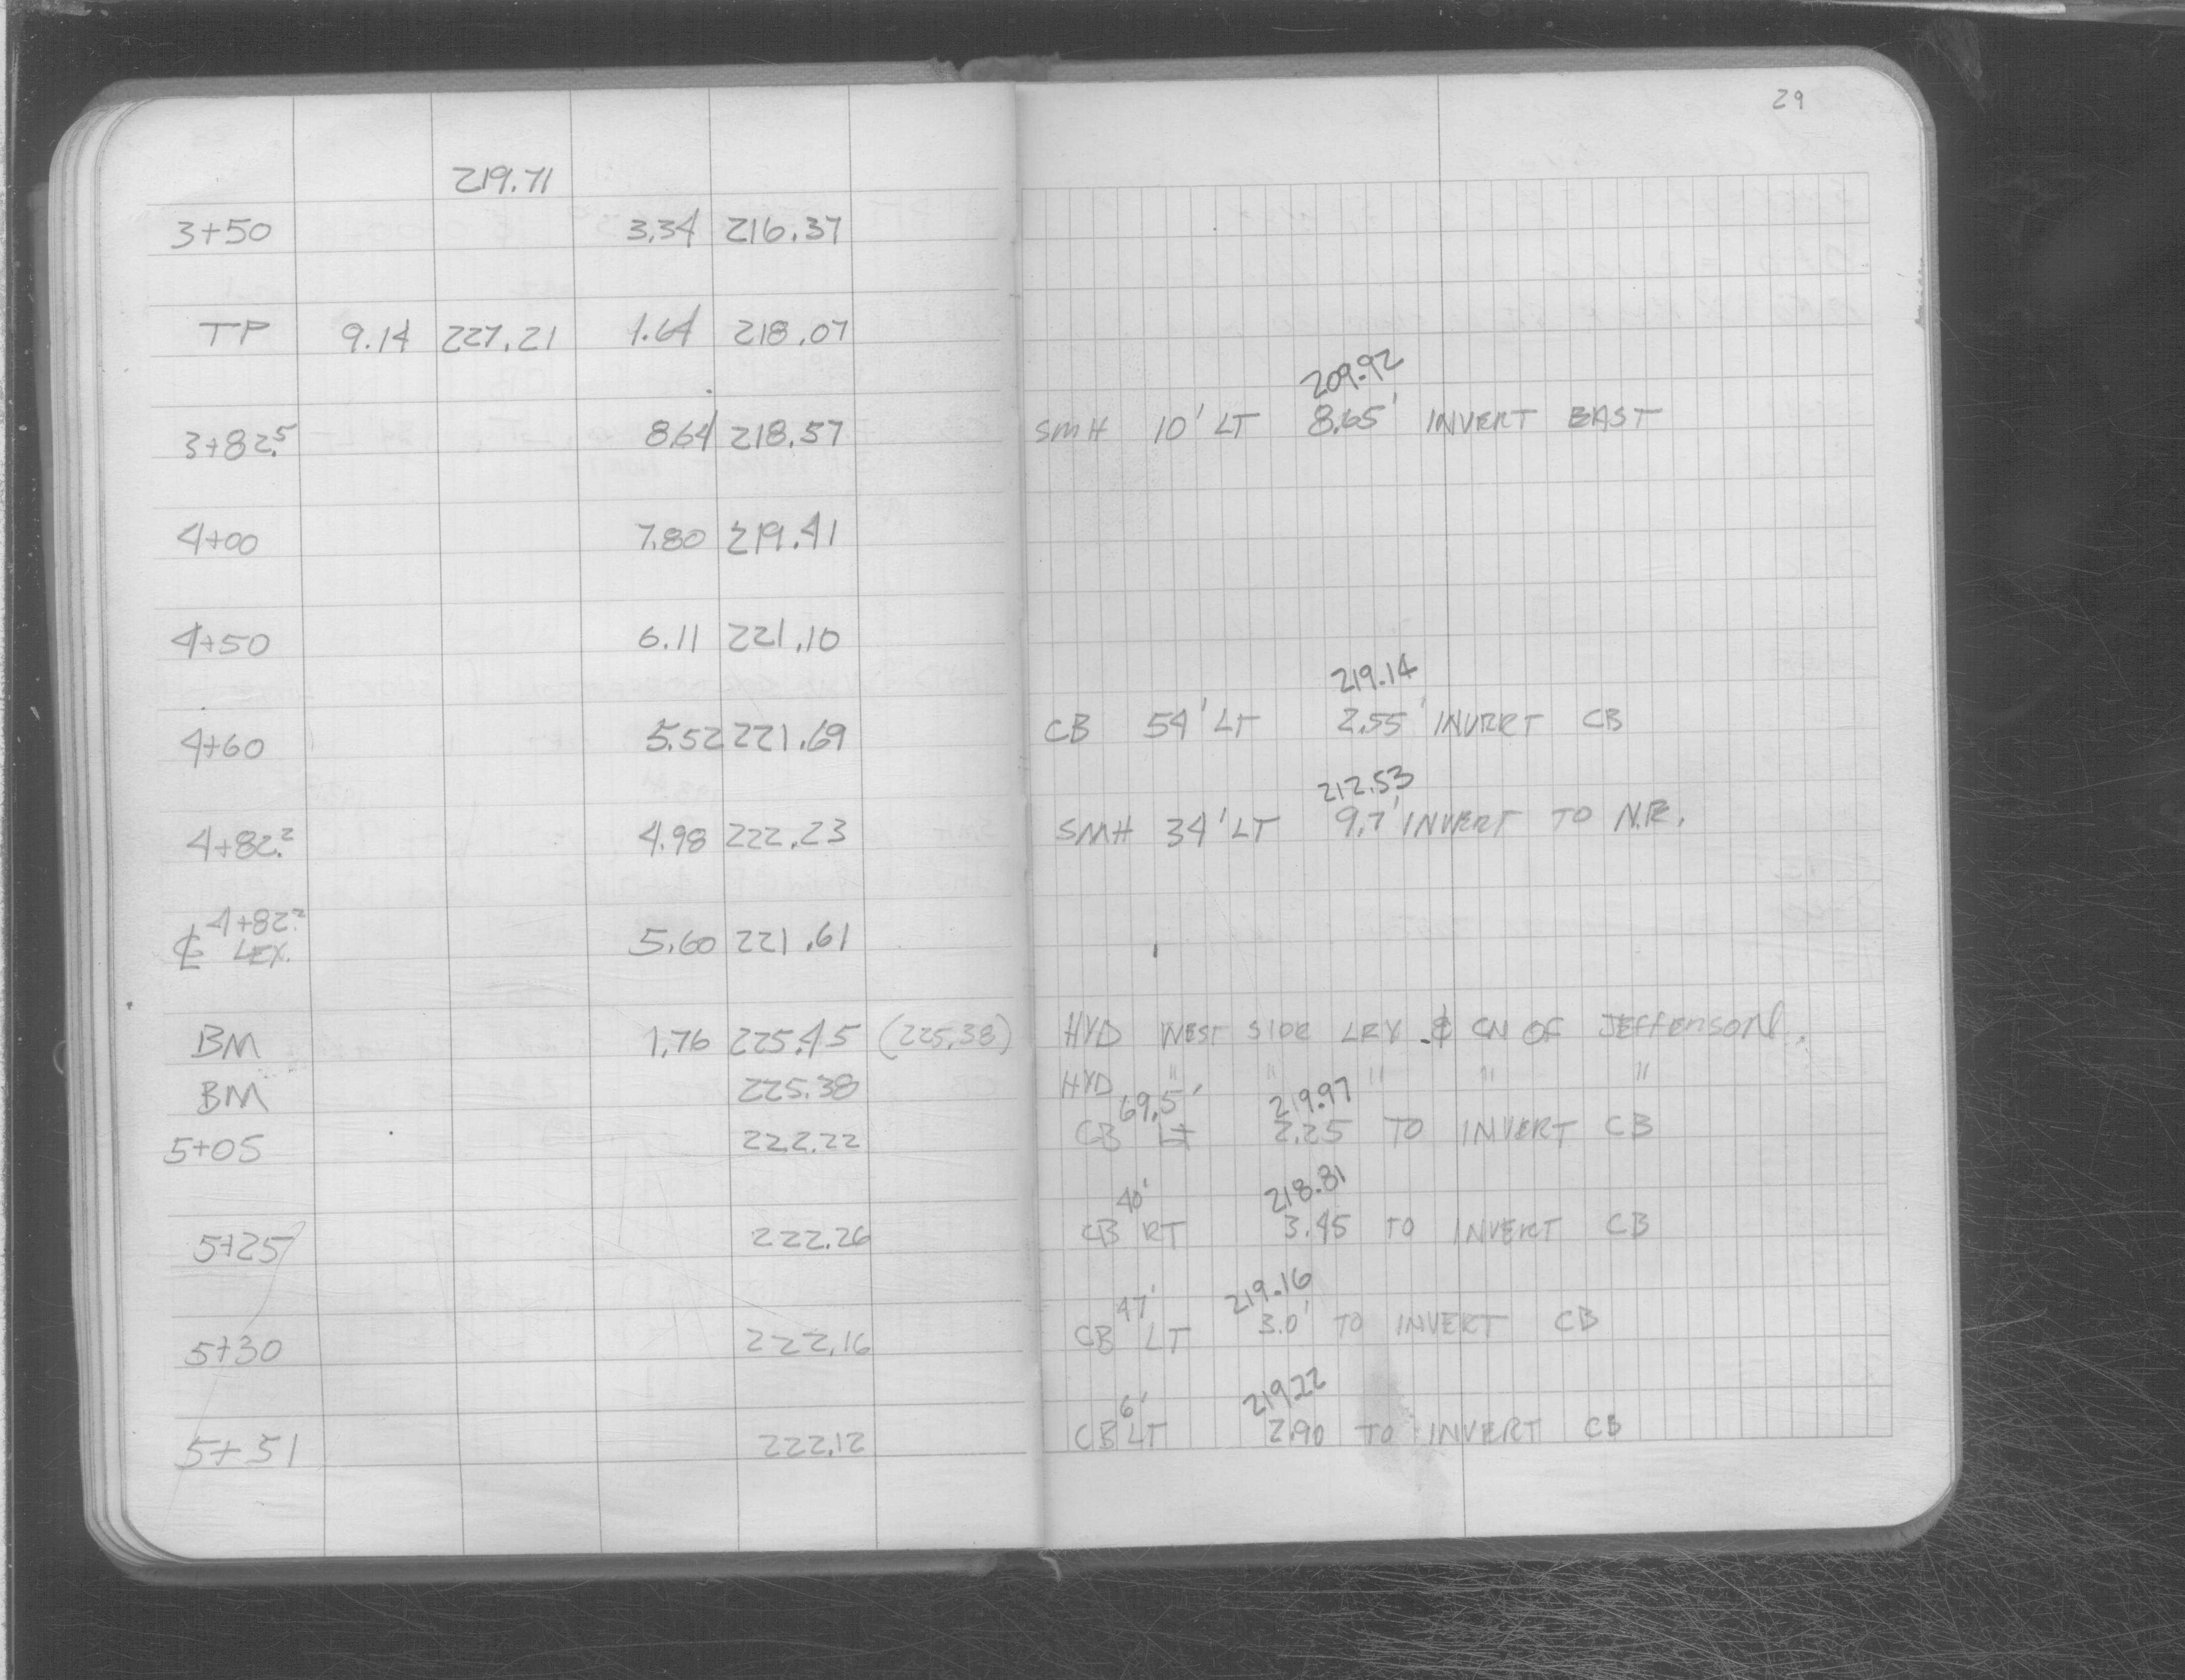 29
219.71
3+50 3.34 216.37
TP 9.14 227.21 1.64 218.07
209.92
3+82.5 8.64 218.57 SMH 10' LT 8.65' INVERT EAST
4+00 7.80 219.41
4+50 6.11 221.10
219.14
4+60 5.52 221.69 CB 54' LT 2.55' INVERT CB
212.53
4+82.2 4.98 222.23 SMH 34' LT 9.7' INVERT TO N.E.
4+82.2
℄ LEX. 5.60 221.61
BM 1.76 225.45 (225.38) HYD WEST SIDE LEX @ CN OF JEFFERSON.
BM 225.38 HYD " " " " "
69.5' 219.97
5+05 222.22 CB LT 2.25 TO INVERT CB
40' 218.81
5+25 222.26 CB RT 3.45 TO INVERT CB
47' 219.16
5+30 222.16 CB LT 3.0' TO INVERT CB
6' 219.22
5+51 222.12 CB LT 2.90 TO INVERT CB